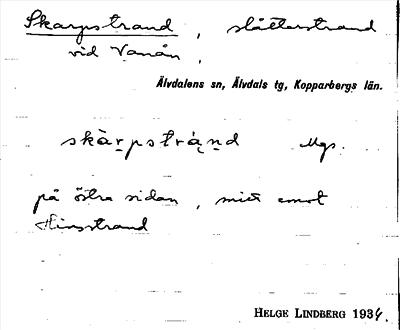 Skarpstrand, slåtterstrand
vid Vanån,
Älvdalens sn, Älvdals tg, Kopparbergs län.
skàr̥pstrá̢n̥d Mgs.
på östra sidan, mitt emot
Hinsstrand
HELGE LINDBERG 1934.